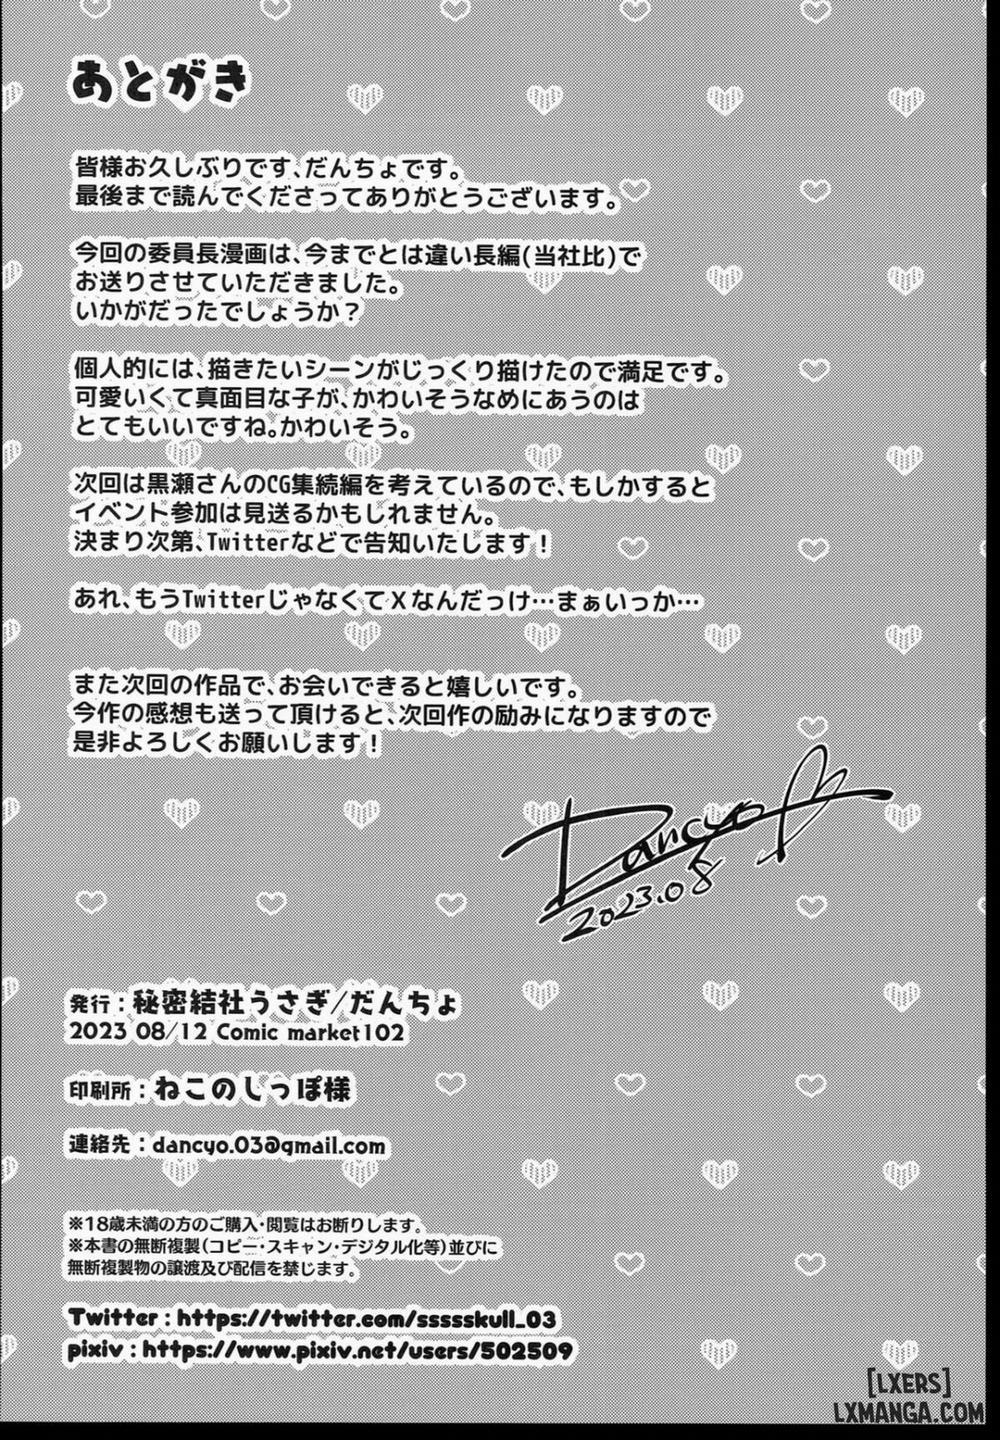 あとがき
皆様お久しぶりです、だんちょです。
最後まで読んでくださってありがとうございます。
今回の委員長漫画は、今までとは違い長編(当社比)で
お送りさせていただきました。
いかがだったでしょうか?
個人的には、描きたいシーンがじっくり描けたので満足です。
可愛いくて真面目な子が、かわいそうなめにあうのは
とてもいいですね。かわいそう。
次回は黒瀬さんのCG集続編を考えているので、もしかすると
イベント参加は見送るかもしれません。
決まり次第、Twitterなどで告知いたします!
あれ、もうTwitterじゃなくてXなんだっけ…まぁいっか…
また次回の作品で、お会いできると嬉しいです。
今作の感想も送って頂けると、次回作の励みになりますので
是非よろしくお願いします!
Dancyo
2023.08
発行:秘密結社うさぎ/だんちょ
2023 08/12 Comic market102
印刷所:ねこのしっぽ様
連絡先:dancyo.03@gmail.com
※18歳未満の方のご購入・閲覧はお断りします。
※本書の無断複製(コピー・スキャン・デジタル化等)並びに
無断複製物の譲渡及び配信を禁じます。
Twitter : https://twitter.com/sssskull_03
pixiv : https://www.pixiv.net/users/502509
[LXERS]
LXMANGA.COM